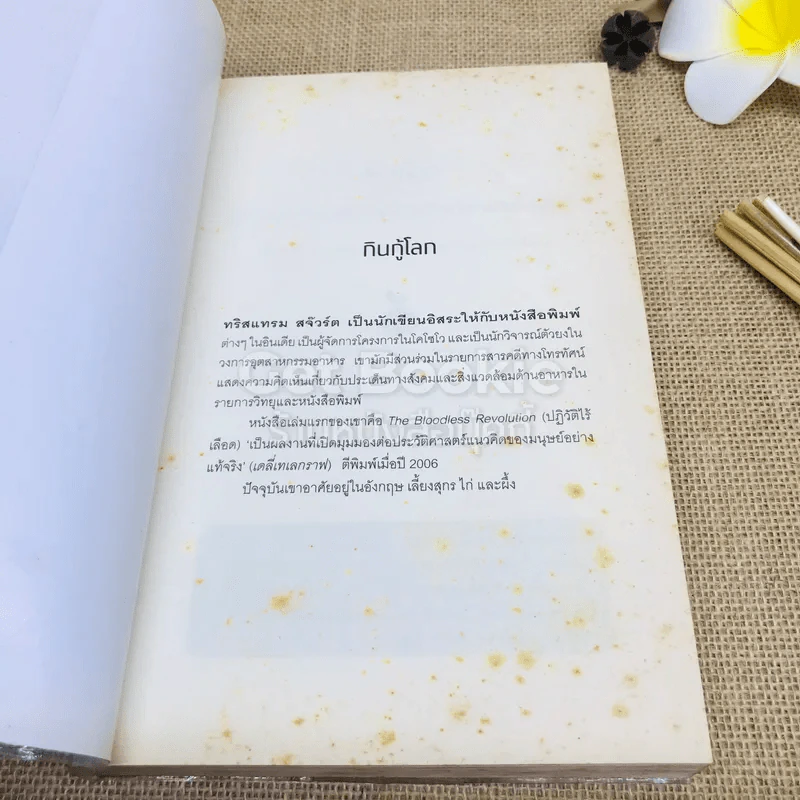 กินกู้โลก
ทริสแทรม สจ๊วร์ต เป็นนักเขียนอิสระให้กับหนังสือพิมพ์
ต่างๆ ในอินเดีย เป็นผู้จัดการโครงการในโคโซโว และเป็นนักวิจารณ์ตัวยงใน
วงการอุตสาหกรรมอาหาร เขามักมีส่วนร่วมในรายการสารคดีทางโทรทัศน์
แสดงความคิดเห็นเกี่ยวกับประเด็นทางสังคมและสิ่งแวดล้อมด้านอาหารใน
รายการวิทยุและหนังสือพิมพ์
หนังสือเล่มแรกของเขาคือ The Bloodless Revolution (ปฏิวัติไร้
เลือด) 'เป็นผลงานที่เปิดมุมมองต่อประวัติศาสตร์แนวคิดของมนุษย์อย่าง
แท้จริง' (เดลี่เทเลกราฟ) ตีพิมพ์เมื่อปี 2006
ปัจจุบันเขาอาศัยอยู่ในอังกฤษ เลี้ยงสุกร ไก่ และผึ้ง